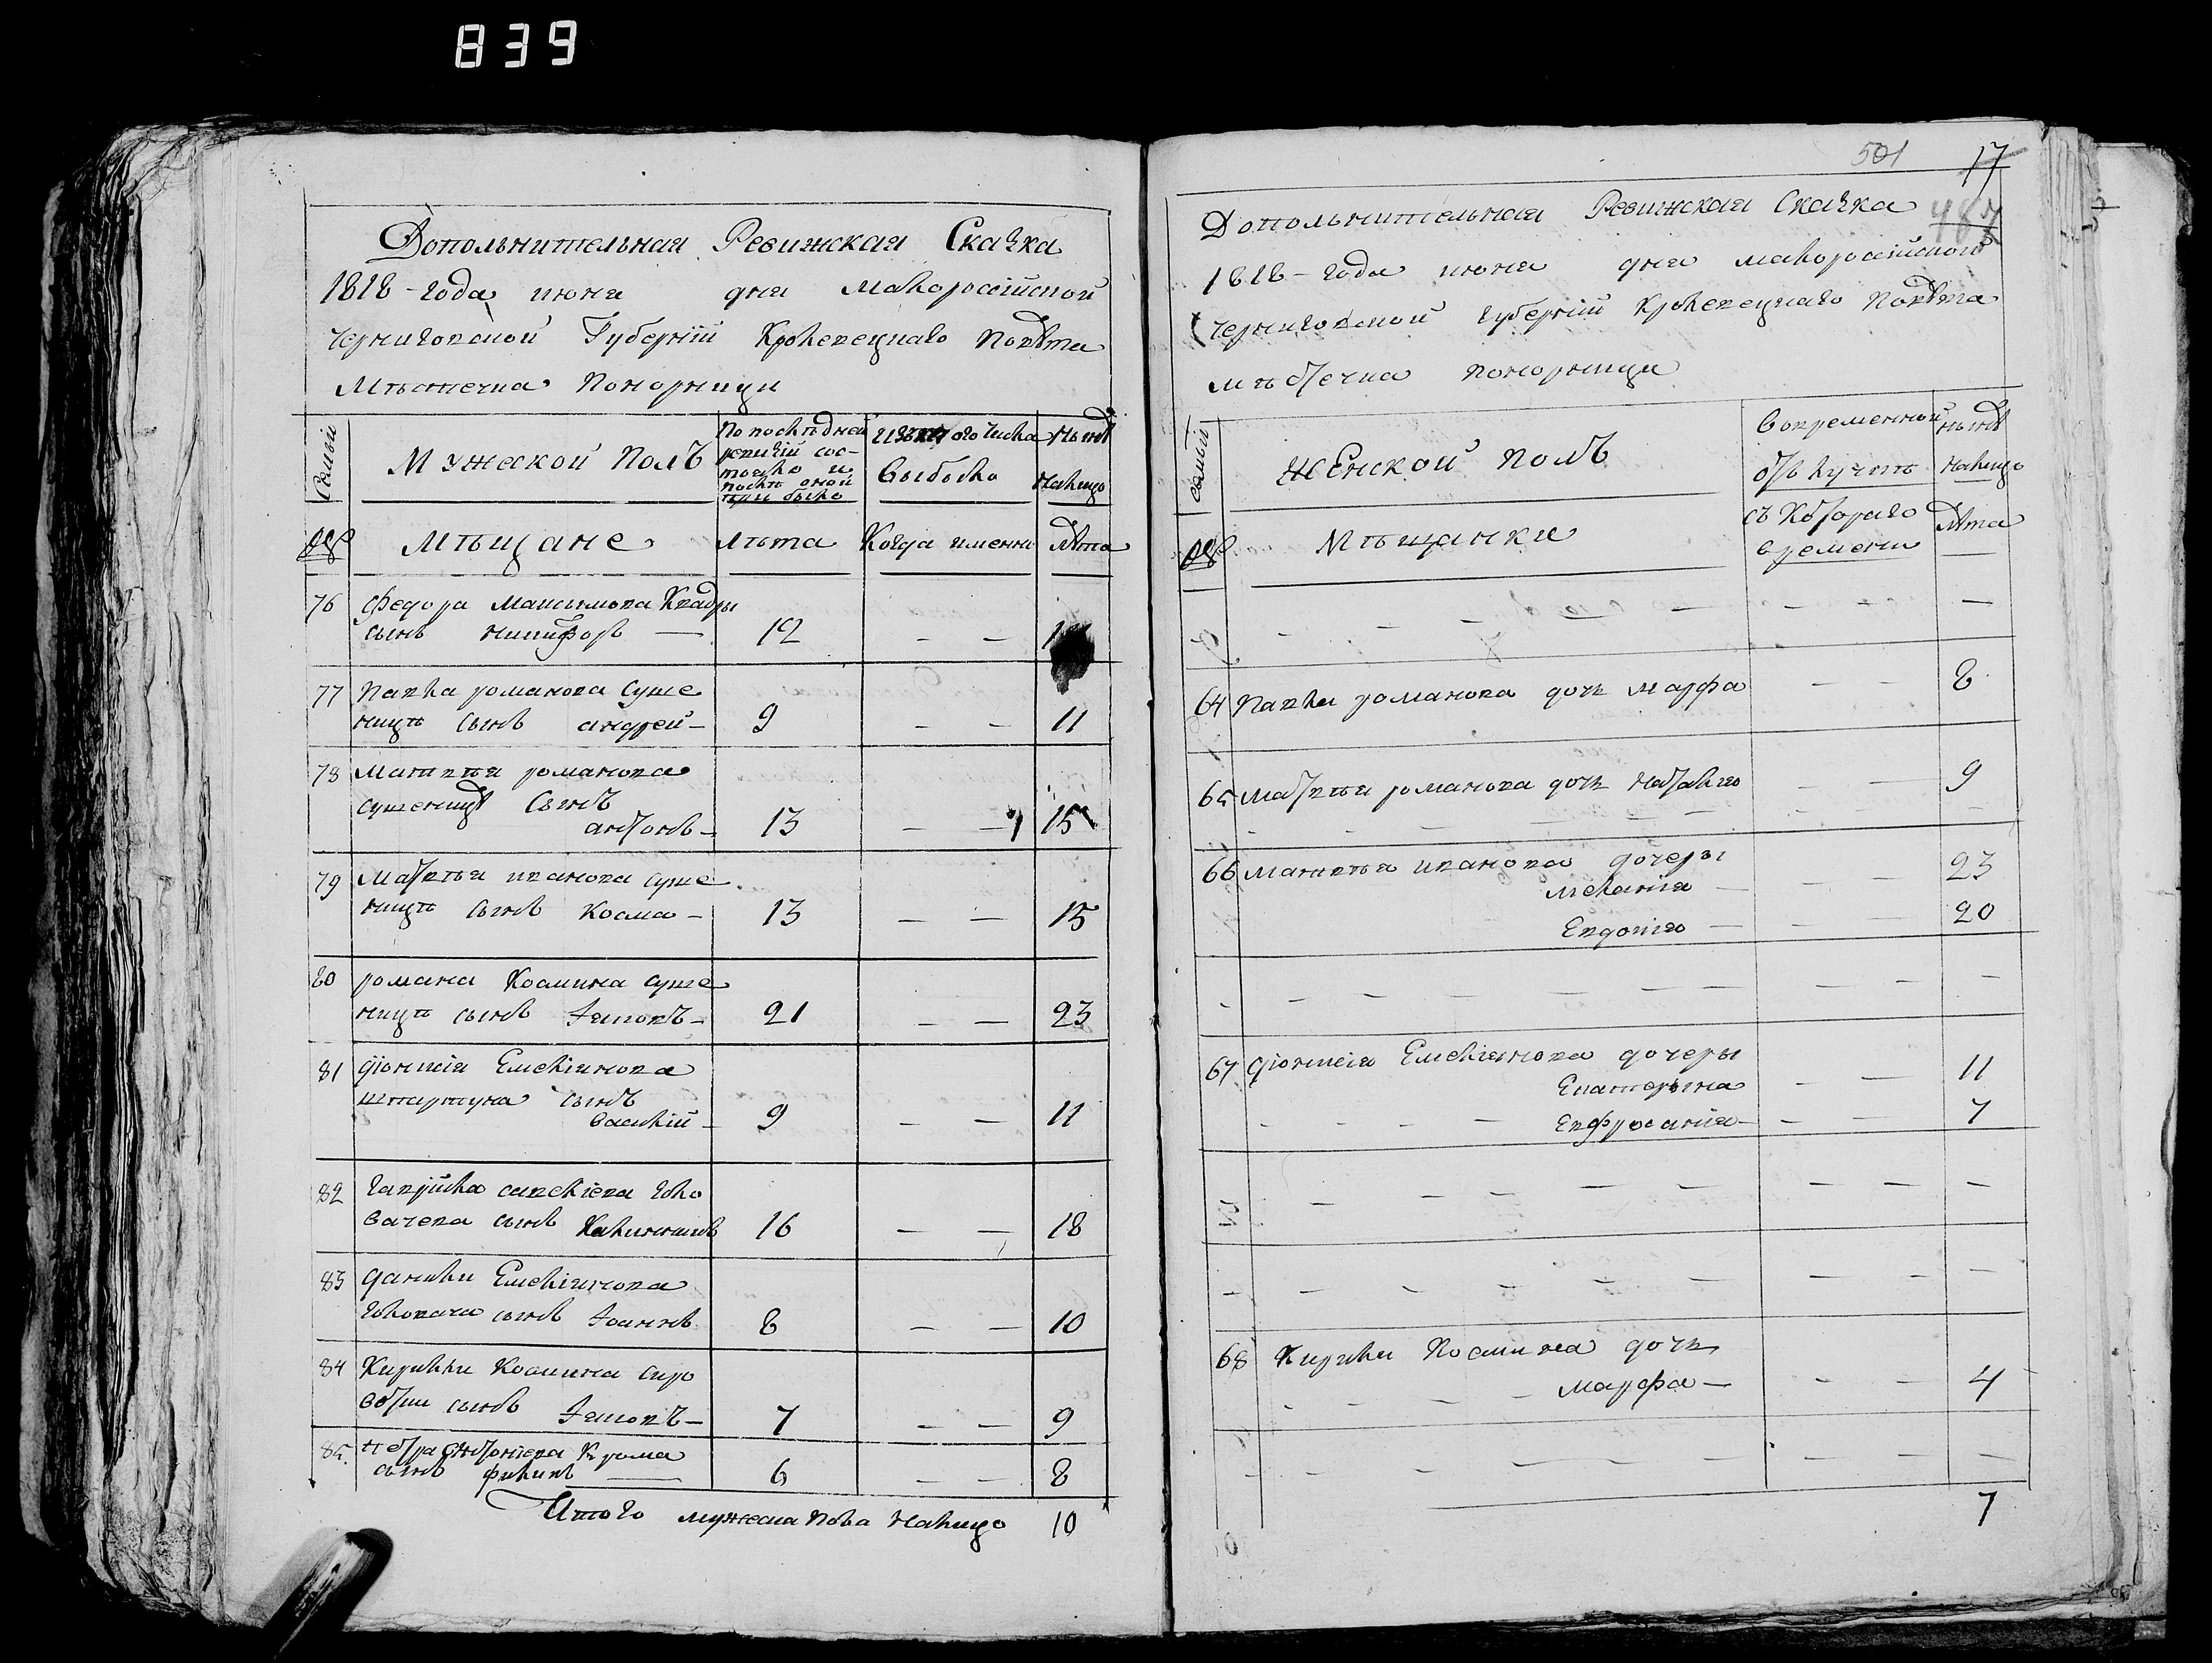 839
Допольнительная Ревижская Сказка
1818-года июня дня Малороссійской
Черниговской Губерніи Кролевецкаго Повѣта
Мѣстечка Понорници
Семьи
Мужеской Полъ
По послѣдней
ревизіи сос-
тояло и
послѣ оной
прибыло
того числа
выбыло
Нынѣ
Налицо
№
Мѣщане
Лѣта
Когда имянно
Лѣта
76 Федора Максимова Квадры
сынъ Никифоръ — 12 — —
77 Павла романова Суше
ницѣ сынъ андрей — 9 — — 11
78 Матвѣя романова
сушеницѣ Сынъ
антонъ — 13 — — 15
79 Матвѣя иванова суше
ницѣ Сынъ Косма — 13 — — 15
80 романа Космина суше
ницѣ сынъ Іяковъ — 21 — — 23
81 Діонисія Емеліянова
шпартуна сынъ
василій — 9 — — 11
82 Гаврила савелієва Голо
вачева сынъ Калинникъ 16 — — 18
83 Данилы Емеліянова
Головача сынъ Іоаннъ 8 — — 10
84 Кирилы Космина сиро
вотки сынъ Іяковъ — 7 — — 9
85. Петра Антонієва Крома
сынъ филипъ — 6 — — 8
Итого мужеска пола Налицо 10
501 17
487
Допольнительная Ревижская Сказка
1818-года июня дня малоросійской
Черниговской Губерніи Кролевецкаго Повѣта
мѣстечка понорници
семьи
Женской полъ
Вовременной
отлучкѣ
нынѣ
налицо
№
Мѣщанки
съ Котораго
времени
Лѣта
— — — — — —
64 Павла романова дочь марфа — — 8
65 Матвѣя романова дочь Наталія — — 9
66 Матвѣя иванова дочеры
Меланія — — — 23
Евдокія — — — 20
— — — — — —
67 Діонисія Емеліянова дочеры
Екатерына — — 11
Евфросинія — — — 7
— — — — — —
— — — — — —
68 Кирилы Космина дочь
Марфа — — — 4
— — — — — —
7